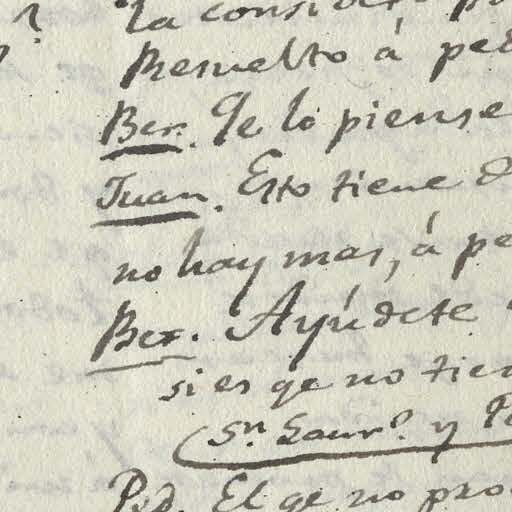 la consider
Resuelto á ped
Ber. Qe lo piense
Juan. Esto tiene d
no hay mas, á pe
Ber. Ayúdete
si es qe no tien
Sn. Laurº. y Pe
Ped. El qe no pro